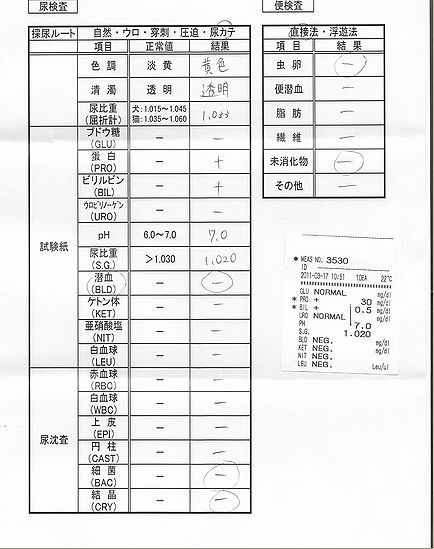 尿検査
採尿ルート 自然・ウロ・穿刺・圧迫・尿カテ
項目 正常値 結果
色調 淡黄 黄色
清濁 透明 透明
尿比重 犬:1.015~1.045
(屈折計) 猫:1.035~1.060 1.033
試験紙
ブドウ糖
(GLU) − −
蛋白
(PRO) − +
ビリルビン
(BIL) − +
ウロビリノーゲン
(URO) − −
pH 6.0~7.0 7.0
尿比重
(S.G.) >1.030 1.020
潜血
(BLD) − −
ケトン体
(KET) − −
亜硝酸塩
(NIT) − −
白血球
(LEU) − −
尿沈査
赤血球
(RBC) − −
白血球
(WBC) − −
上皮
(EPI) − −
円柱
(CAST) − −
細菌
(BAC) − −
結晶
(CRY) − −
便検査
直接法・浮遊法
項目 結果
虫卵 −
便潜血 −
脂肪 −
繊維 −
未消化物 −
その他 −
MEAS NO. 3530
ID
2011-03-17 10:51 10EA 22℃
GLU NORMAL mg/dl
* PRO + 30 mg/dl
* BIL + 0.5 mg/dl
URO NORMAL mg/dl
PH 7.0
S.G. 1.020
BLD NEG. mg/dl
KET NEG. mg/dl
NIT NEG.
LEU NEG. Leu/μl